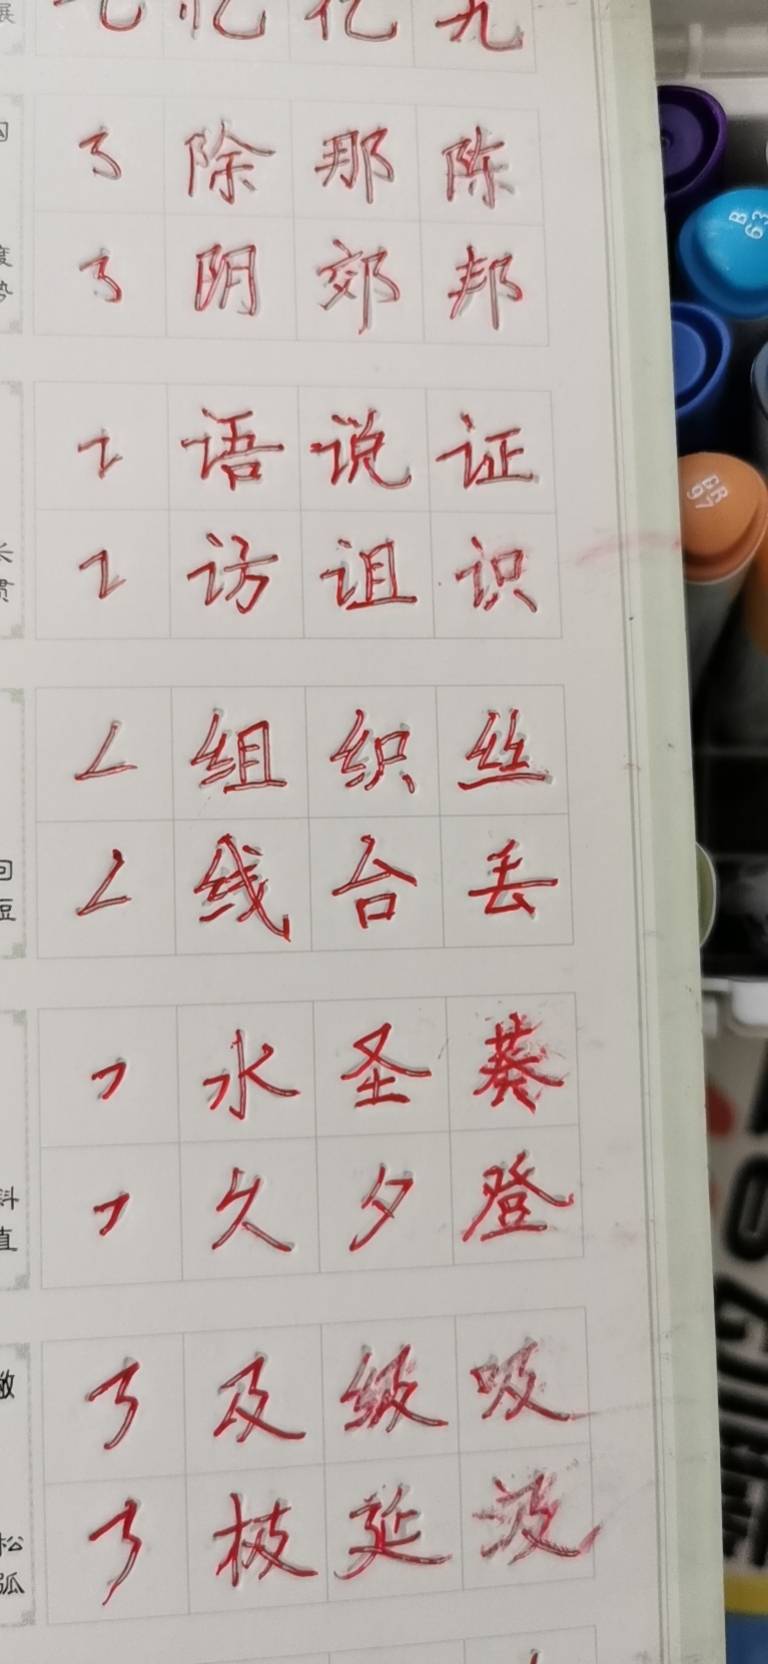 展 乚 忆 亿 九
㇌ 除 那 陈
㇌ 阴 郊 邦
㇊ 语 说 证
㇊ 访 诅 识
㇜ 组 织 丝
㇜ 线 台 丢
㇇ 水 圣 葵
㇇ 久 夕 登
㇋ 及 级 吸
㇋ 极 延 汲
度
势
长
贯
回
短
斜
直
敏
松
弧
B
63
BR
97